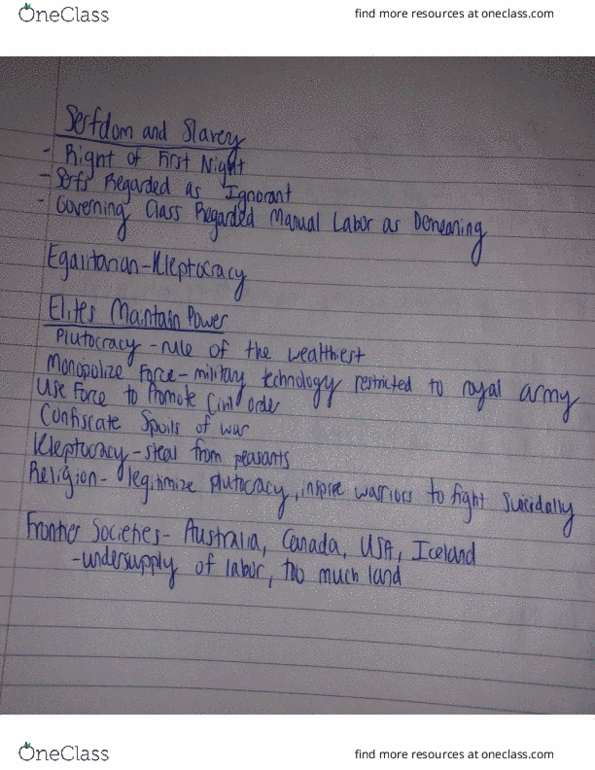 OneClass
find more resources at oneclass.com
Serfdom and Slavery
- Right of First Night
- Serfs Regarded as Ignorant
- Governing Class Regarded Manual Labor as Demeaning
Egalitarian-Kleptocracy
Elites Maintain Power
Plutocracy - rule of the wealthiest
Monopolize Force - military technology restricted to royal army
Use Force to Promote Civil Order
Confiscate Spoils of war
Kleptocracy - steal from peasants
Religion - legitimize plutocracy, inspire warriors to fight suicidally
Frontier Societies - Australia, Canada, USA, Iceland
- undersupply of labor, too much land
OneClass
find more resources at oneclass.com